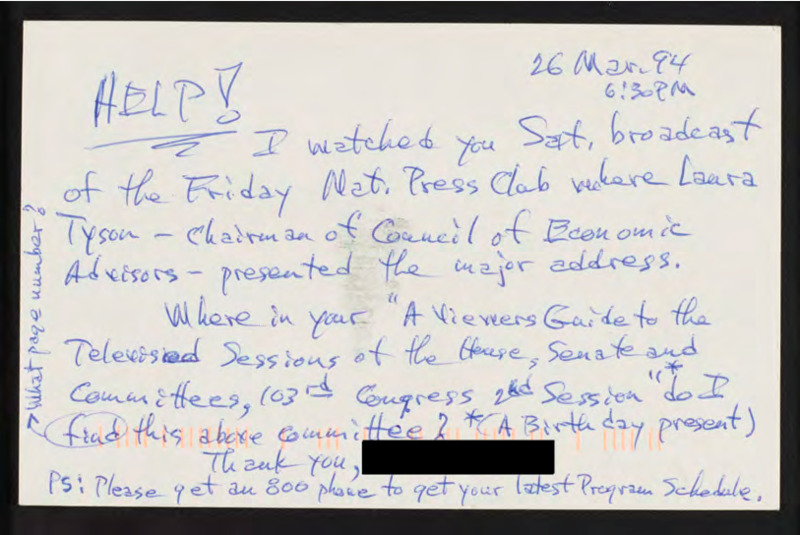 26 Mar. 94
6:30PM
HELP!
I watched you Sat. broadcast
of the Friday Nat. Press Club where Laura
Tyson – Chairman of Council of Economic
Advisors – presented the major address.
Where in your "A Viewers Guide to the
Televised Sessions of the House, Senate and
Committees, 103rd Congress 2nd Session"* do I
find this above committee? *(A Birthday present)
Thank you,
PS: Please get an 800 phone to get your latest Program Schedule.
→ What page number?